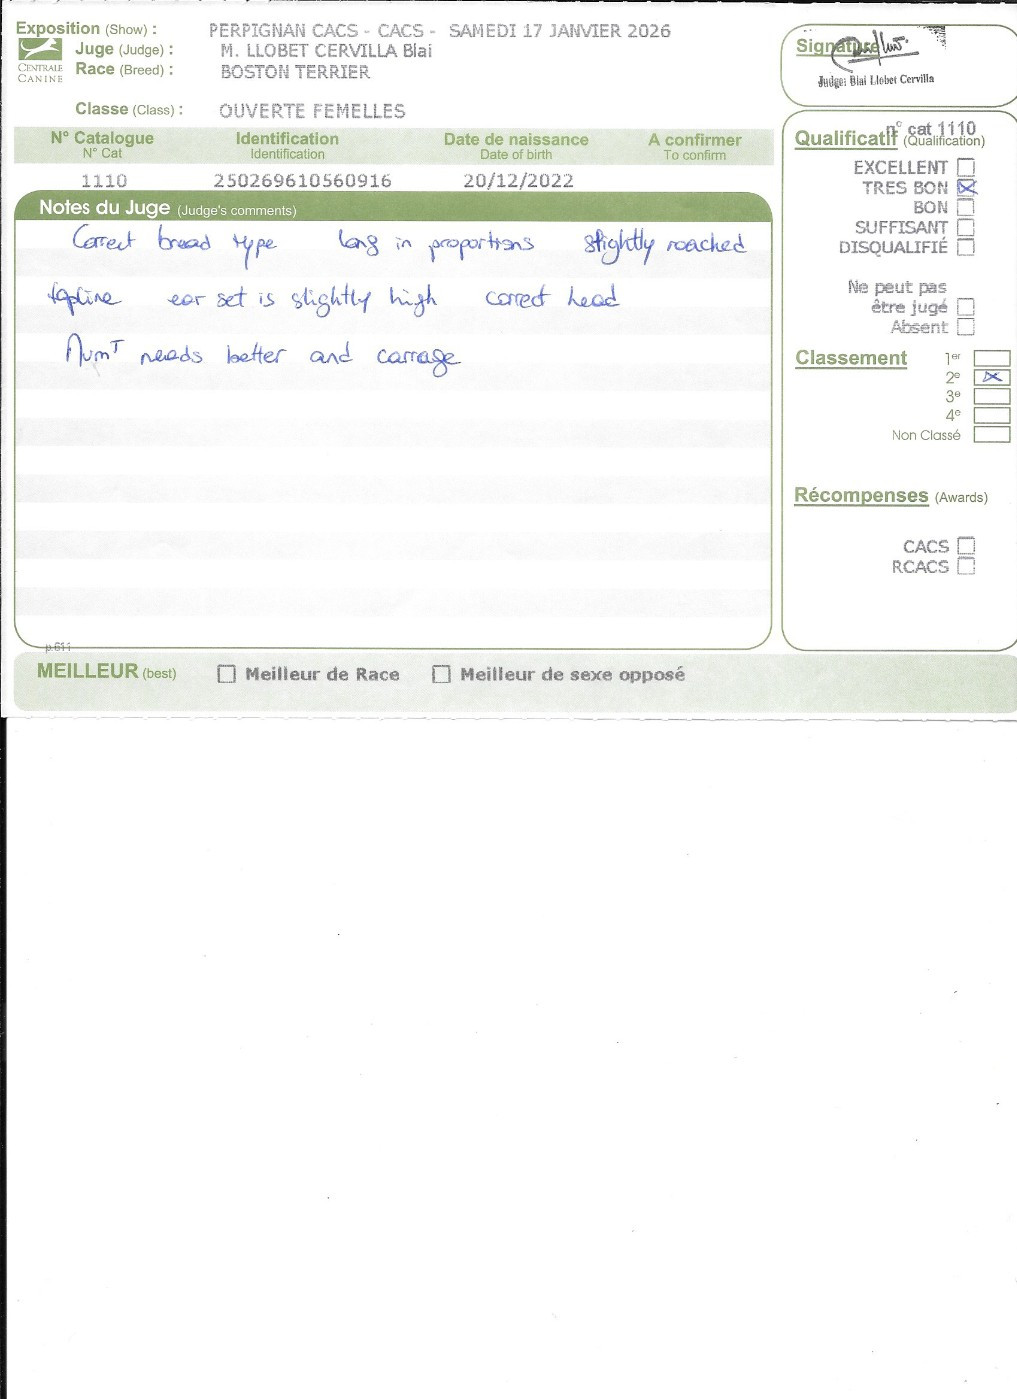 Exposition (Show) : PERPIGNAN CACS - CACS - SAMEDI 17 JANVIER 2026
CENTRALE CANINE
Juge (Judge) : M. LLOBET CERVILLA Blai
Race (Breed) : BOSTON TERRIER
Classe (Class) : OUVERTE FEMELLES
Signature
Judge: Blai Llobet Cervilla
N° Catalogue Identification Date de naissance A confirmer
N° Cat Identification Date of birth To confirm
1110 250269610560916 20/12/2022
Notes du Juge (Judge's comments)
Correct breed type long in proportions slightly roached
topline ear set is slightly high correct head
needs better and carrage
p.611
n° cat 1110
Qualificatif (Qualification)
EXCELLENT
TRES BON
BON
SUFFISANT
DISQUALIFIÉ
Ne peut pas
être jugé
Absent
Classement 1er
2e
3e
4e
Non Classé
Récompenses (Awards)
CACS
RCACS
MEILLEUR (best) Meilleur de Race Meilleur de sexe opposé